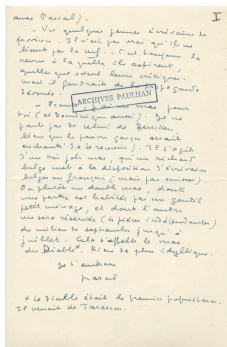 avec Pascal).
I
- Vu quelques jeunes écrivains de
. Il n'est pas vrai qu'ils ne
lisent pas la nrf. C'est toujours la
revue à laquelle ils aspirent
quelles que soient leurs critiques.
mais il faudrait de la propagande
ARCHIVES PAULHAN
- j'ai un mas pour
toi (et Dominique aussi). Je ne
parle pas de celui de
bien que le pauvre garçon serait
enchanté de te revoir). Il s'agit
d'un très joli mas, qu'un richard
belge met à la disposition d'écrivains
belges ou français (mais pas suisses).
Ou plutôt un double mas, dont
une partie est habitée par un gentil
petit ménage, et dont l'autre
me sera réservée (4 pièces indépendantes)
du milieu de septembre jusqu'à
juillet. Cela s'appelle le mas
du Diable*. Rien de plus idyllique.
Je t'embrasse
Marcel
* Le Diable était le premier propriétaire.
Il venait de Tarascon.